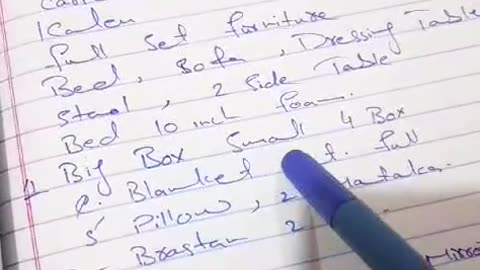 Kalen
full set furniture
Bed, Sofa, Dressing Table
Stand, 2 Side Table
Bed 10 inch foam.
Big Box Small 4 Box
Blanket full
Pillow, 2
2
Mirro